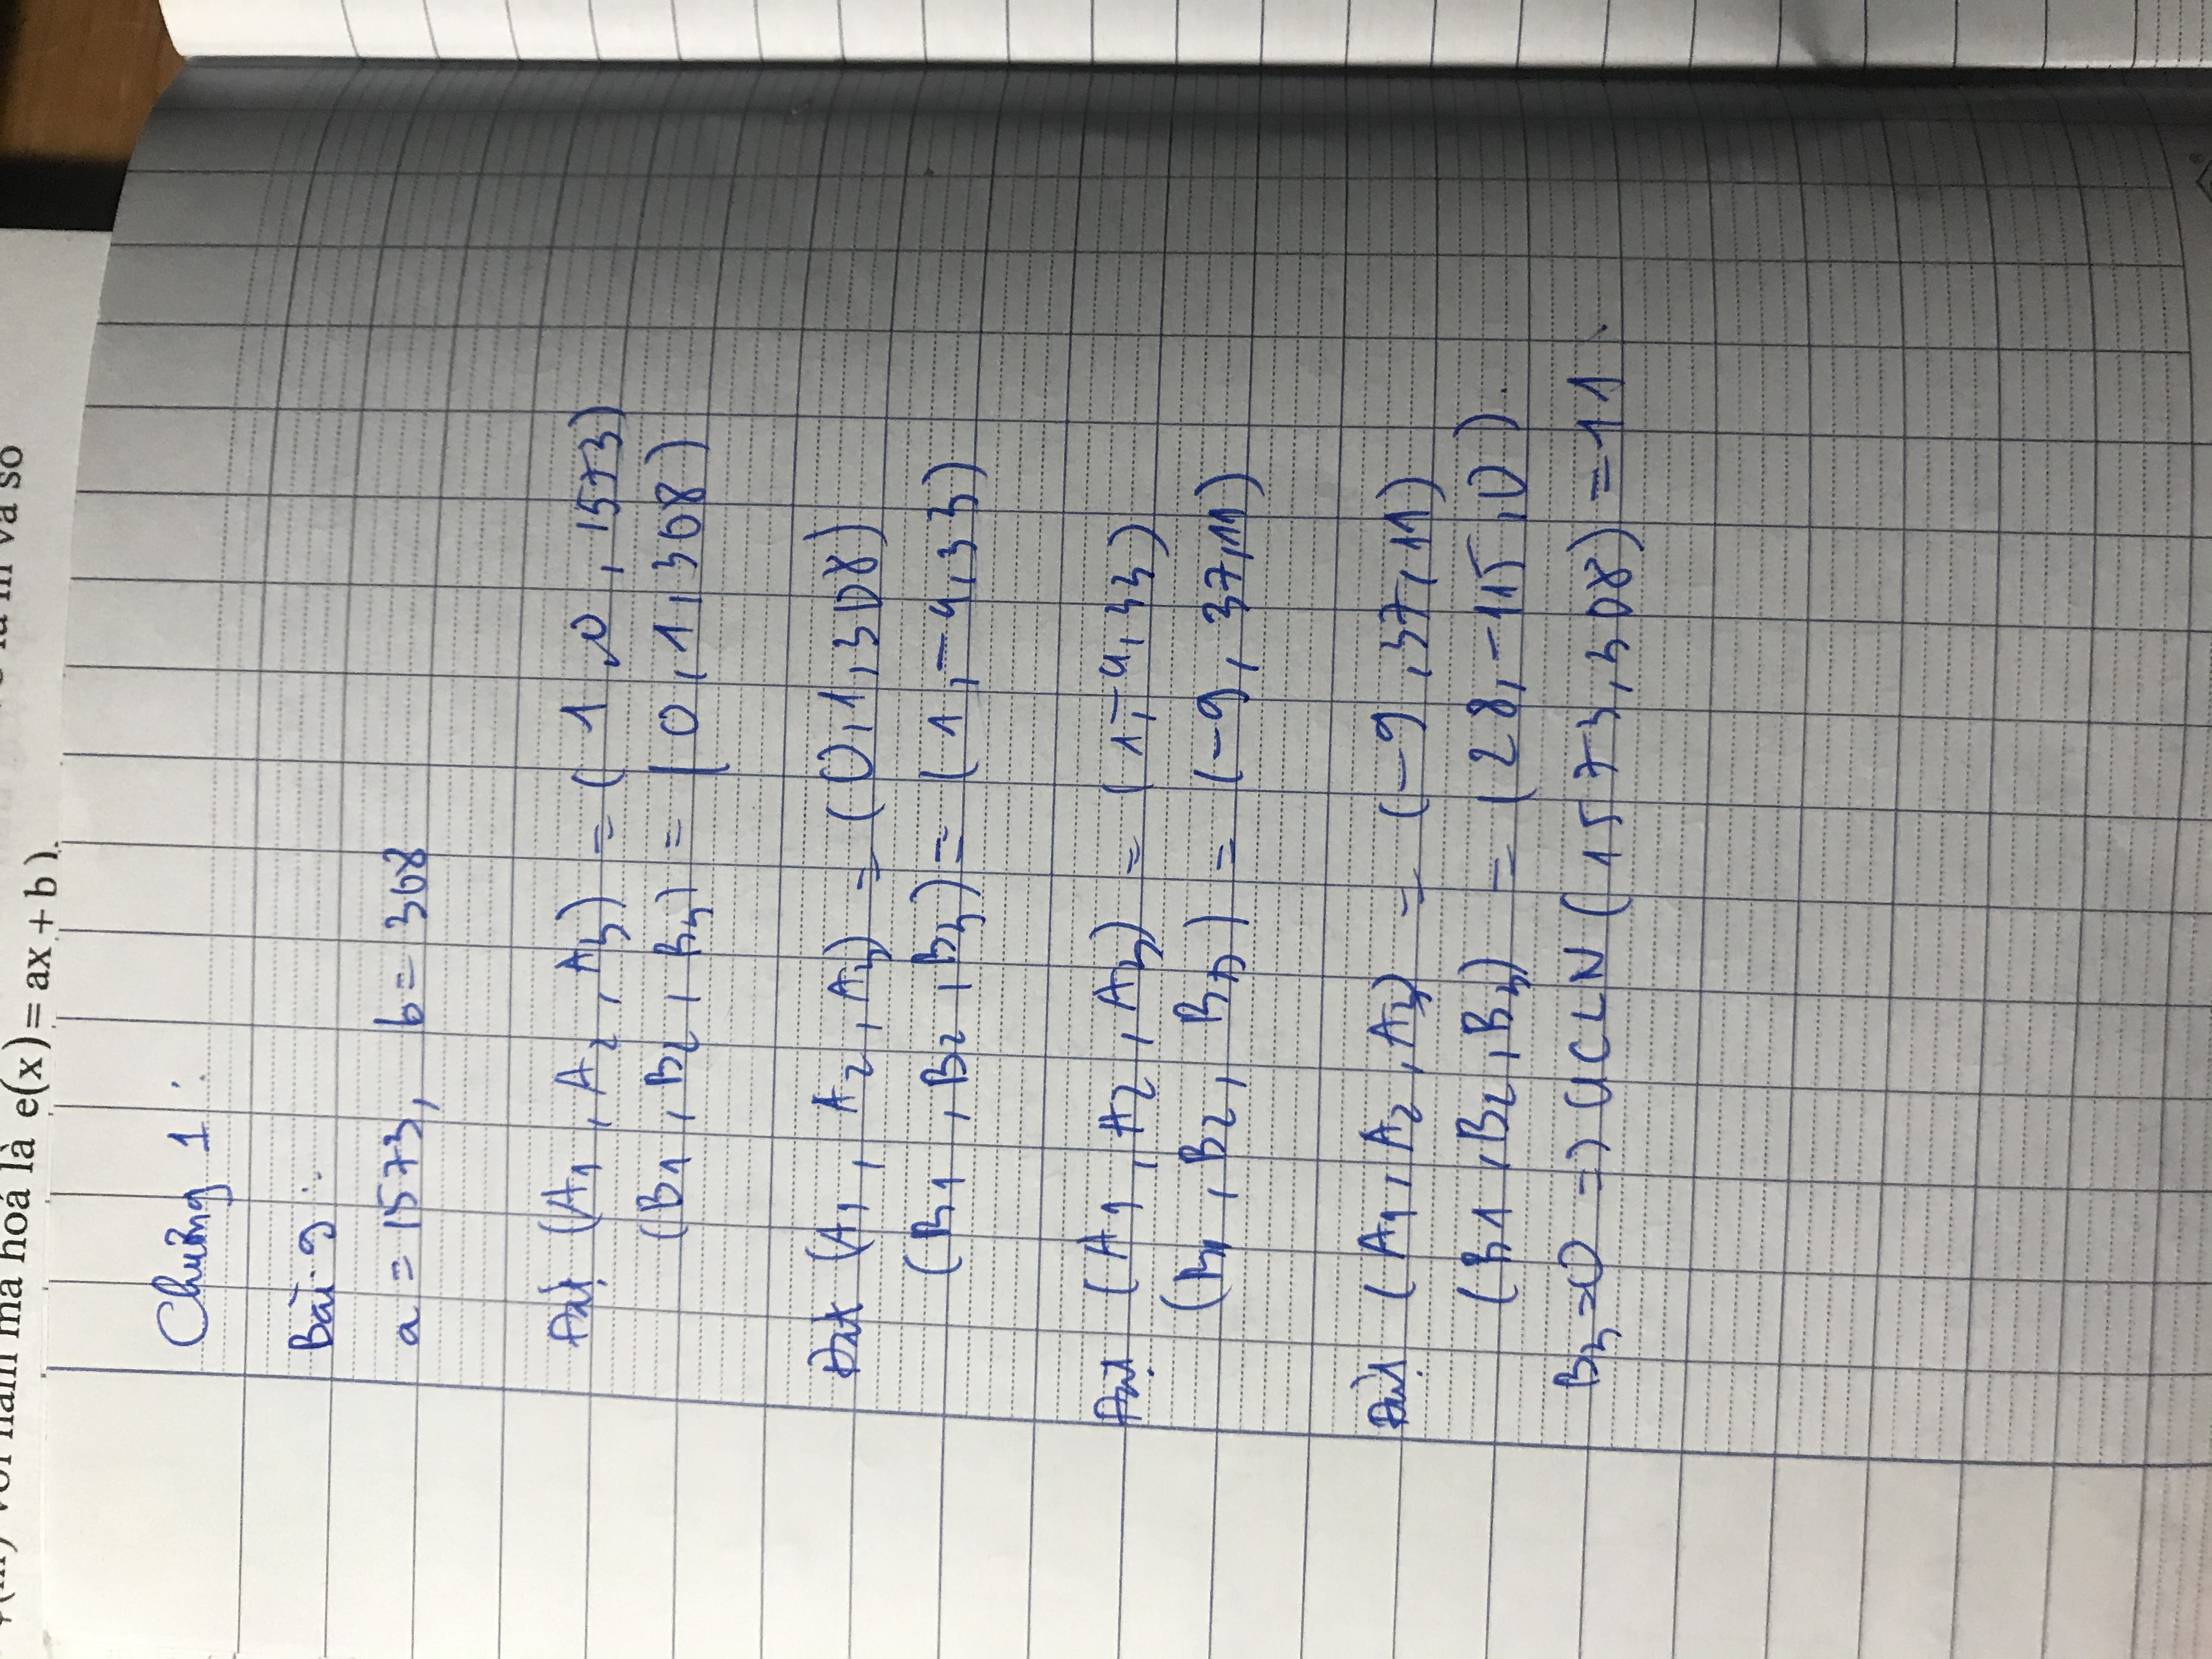 với hàm mã hoá là e(x) = ax + b ).
và số
Chương 1 :
Bài 9 :
a = 1573, b = 308
Đặt (A1 , A2 , A3) = ( 1 , 0 , 1573)
(B1 , B2 , B3) = ( 0 , 1 , 308 )
Đặt (A1 , A2 , A3) = (0, 1, 308)
(B1 , B2 , B3) = ( 1 , -5, 33)
Đặt (A1 , A2 , A3) = ( 1, -5, 33)
(B1 , B2 , B3) = (-9 , 37, 11)
Đặt (A1 , A2 , A3) = (-9 , 37, 11)
(B1 , B2 , B3) = (28, -115, 0 ).
B3 = 0 => UCLN ( 1573, 308 ) = 11 .